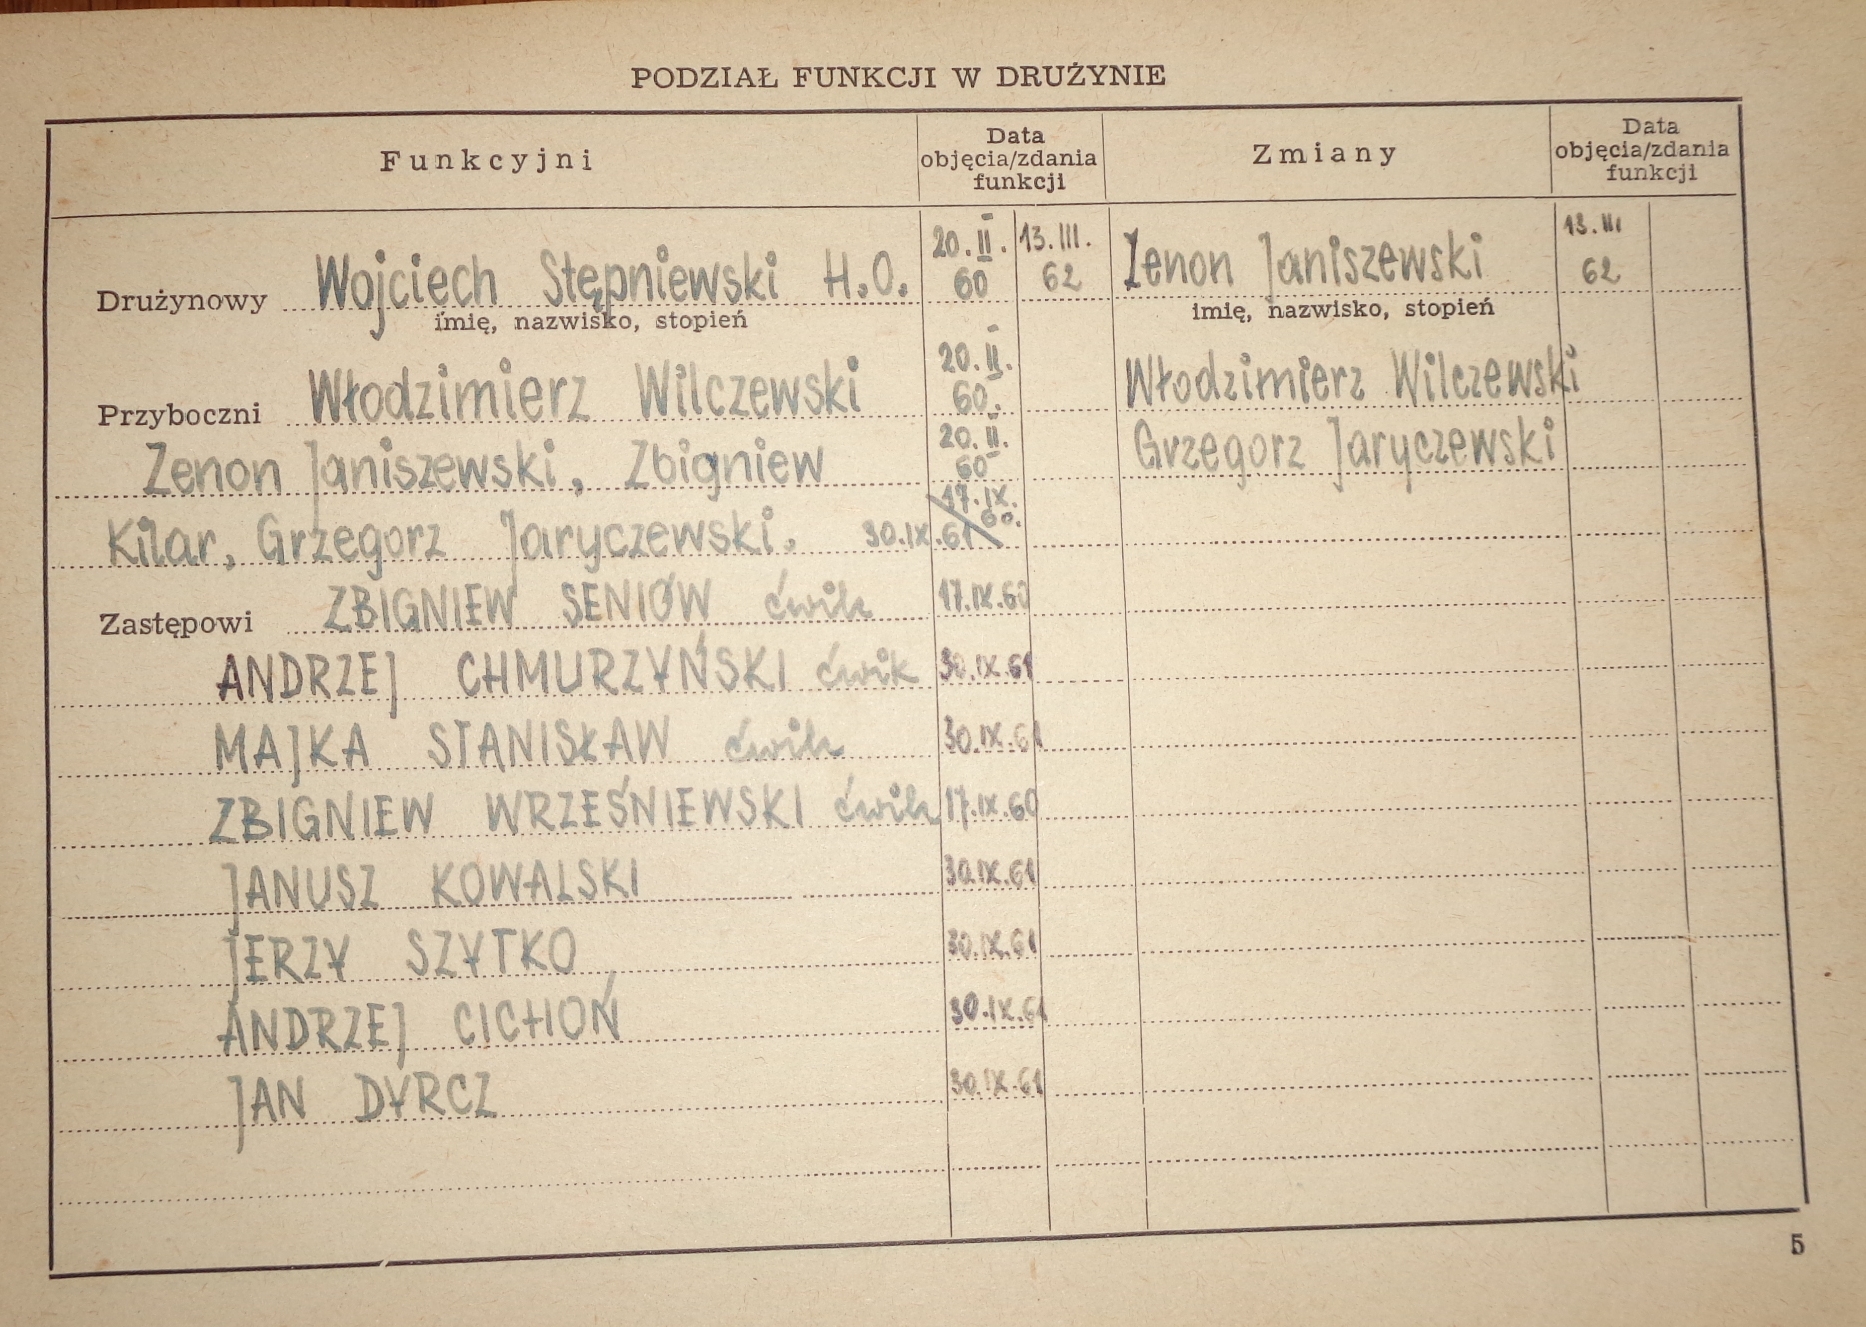 PODZIAŁ FUNKCJI W DRUŻYNIE
Funkcyjni
Data
objęcia/zdania
funkcji
Zmiany
Data
objęcia/zdania
funkcji
Drużynowy Wojciech Stępniewski H.O. 20.II.60 13.III.62 Zenon Janiszewski 13.III 62
imię, nazwisko, stopień imię, nazwisko, stopień
Przyboczni Włodzimierz Wilczewski 20.II.60. Włodzimierz Wilczewski
Zenon Janiszewski, Zbigniew 20.II.60 Grzegorz Jaryczewski
17.IX.60.
Kilar, Grzegorz Jaryczewski. 30.IX.61
Zastępowi ZBIGNIEW SENIÓW ćwik 17.IX.60
ANDRZEJ CHMURZYŃSKI ćwik 30.IX.61
MAJKA STANISŁAW ćwik 30.IX.61
ZBIGNIEW WRZEŚNIEWSKI ćwik 17.IX.60
JANUSZ KOWALSKI 30.IX.61
JERZY SZYTKO 30.IX.61
ANDRZEJ CICHOŃ 30.IX.61
JAN DYRCZ 30.IX.61
5